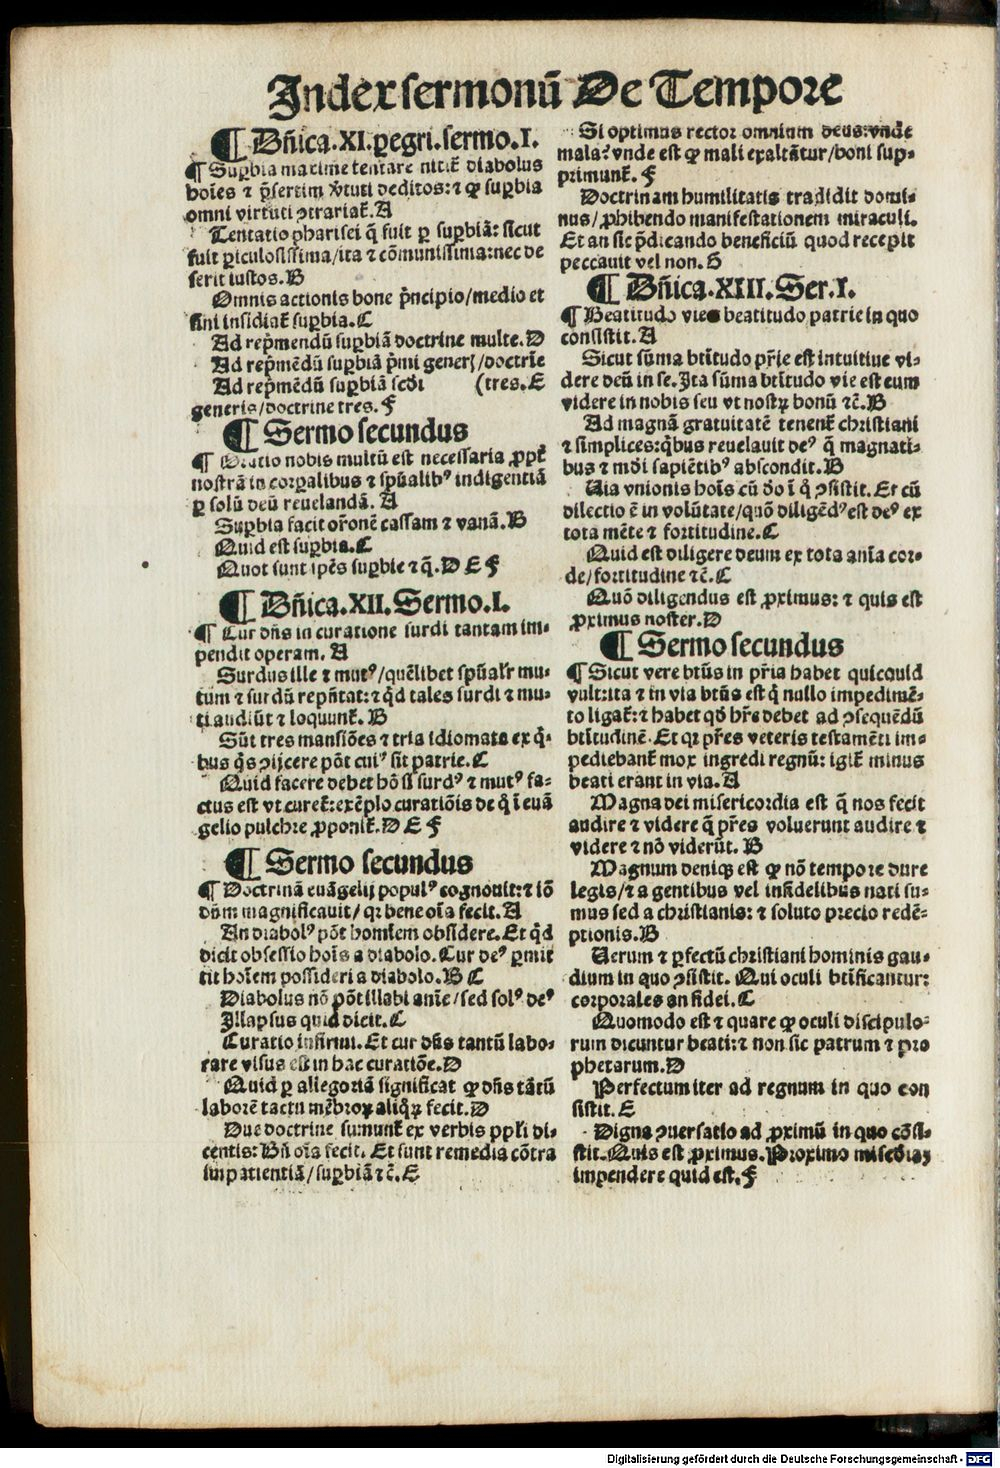 Index sermonū De Tempore
¶ Dn̄ica.XI.ꝑegri.sermo.I.
¶ Suꝑbia maxime tentare nitit̄ diabolus
hoīes ⁊ p̄sertim v̄tuti deditos:⁊ ꝙ suꝑbia
omni virtuti ↄtrariat̄.A
Tentatio pharisei q̄ fuit ꝑ suꝑbiā: sicut
fuit ꝑiculosissima/ita ⁊ cōmunissima:nec de
serit iustos.B
Omnis actionis bone p̄ncipio/medio et
fini insidiat̄ suꝑbia.C
Ad rep̄mendū suꝑbiā doctrine multe.D
Ad rep̄mēdū suꝑbiā p̄mi gener̄/doctrīe
Ad rep̄mēdū suꝑbiā scd̄i (tres.E
generis/doctrine tres.F
¶ Sermo secundus
¶ Oratio nobis multū est necessaria ꝓpt̄
nostrā in corꝑalibus ⁊ sp̄ualibꝰ indigentiā
ꝑ solū deū reuelandā. A
Suꝑbia facit or̄onē cassam ⁊ vanā.B
Quid est suꝑbia.C
Quot sunt sp̄es suꝑbie ⁊ q̄.D E F
¶ Dn̄ica.XII.Sermo.I.
¶ Cur dn̄s in curatione surdi tantam im-
pendit operam. A
Surdus ille ⁊ mutꝰ/quēlibet sp̄ualr̄ mu-
tum ⁊ surdū rep̄n̄tat:⁊ q̄d tales surdi ⁊ mu-
ti audiūt ⁊ loquunt̄. B
Sūt tres mansiōes ⁊ tria idiomata ex q̄-
bus q̄s ↄijcere pōt cuiꝰ sit patrie.C
Quid facere debet hō si surdꝰ ⁊ mutꝰ fa-
ctus est vt curet̄:exēplo curatiōis de q̄ ī euā
gelio pulchre ꝓponit̄.D E F
¶ Sermo secundus
¶ Doctrinā euāgelij populꝰ cognouit:⁊ iō
dūm magnificauit/ qꝛ bene oīa fecit.A
An diabolꝰ pōt homīem obsidere. Et q̄d
dicit obsessio hoīs a diabolo. Cur deꝰ ꝑmit
tit hoīem possideri a diabolo.B C
Diabolus nō pōt illabi anīe/sed solꝰ deꝰ
Illapsus quid dicit.C
Curatio infirmi. Et cur dn̄s tantū labo-
rare visus est in hac curatiōe.D
Quid ꝑ allegoriā significat ꝙ dn̄s tātū
laborē tactu mēbroꝝ aliq̄ꝝ fecit.D
Due doctrine sumunt̄ ex verbis ppl̄i di-
centis: Bn̄ oīa fecit. Et sunt remedia cōtra
impatientiā/suꝑbiā ⁊c̄.E
Si optimus rector omnium deus:vnde
mala? vnde est ꝙ mali exaltātur/boni sup-
primunt̄. F
Doctrinam humilitatis tradidit domi-
nus/ꝓhibendo manifestationem miraculi.
Et an sic p̄dicando beneficiū quod recepit
peccauit vel non. G
¶ Dn̄ica.XIII.Ser.I.
¶ Beatitudo vie ⁊ beatitudo patrie in quo
consistit. A
Sicut sūma btītudo pr̄ie est intuitiue vi-
dere deū in se. Ita sūma btītudo vie est eum
videre in nobis seu vt nostꝝ bonū ⁊c̄.B
Ad magnā gratuitatē tenent̄ christiani
⁊ simplices:qb̄us reuelauit deꝰ q̄ magnati-
bus ⁊ mōi sapiētibꝰ abscondit.B
Uia vnionis hoīs cū dō ī q̄ ↄsistit. Et cū
dilectio ē in volūtate/quō diligēdꝰ est deꝰ ex
tota mēte ⁊ fortitudine.C
Quid est diligere deum ex tota anīa cor-
de/fortitudine ⁊c̄.C
Quō diligendus est ꝓximus: ⁊ quis est
ꝓximus noster.D
¶ Sermo secundus
¶ Sicut vere btūs in pr̄ia habet quicquid
vult:ita ⁊ in via btūs est q̄ nullo impedimē-
to ligat̄:⁊ habet qd̄ hr̄e debet ad ↄsequēdū
btītudinē. Et qꝛ pr̄es veteris testamēti im-
pediebant̄ mox ingredi regnū: igit̄ minus
beati erant in via.A
Magna dei misericordia est q̄ nos fecit
audire ⁊ videre q̄ pr̄es voluerunt audire ⁊
videre ⁊ nō viderūt. B
Magnum deniqꝫ est ꝙ nō tempore dure
legis/⁊ a gentibus vel infidelibus nati su-
mus sed a christianis: ⁊ soluto precio redē-
ptionis.B
Uerum ⁊ ꝑfectū christiani hominis gau-
dium in quo ↄsistit. Qui oculi btīficantur:
corporales an fidei.C
Quomodo est ⁊ quare ꝙ oculi discipulo-
rum dicuntur beati:⁊ non sic patrum ⁊ pro
phetarum.D
Perfectum iter ad regnum in quo con
sistit. E
Digna ↄuersatio ad ꝓximū in quo cōsi-
stit. Quis est ꝓximus. Proximo misc̄diaꝫ
impendere quid est.F
Digitalisierung gefördert durch die Deutsche Forschungsgemeinschaft - DFG